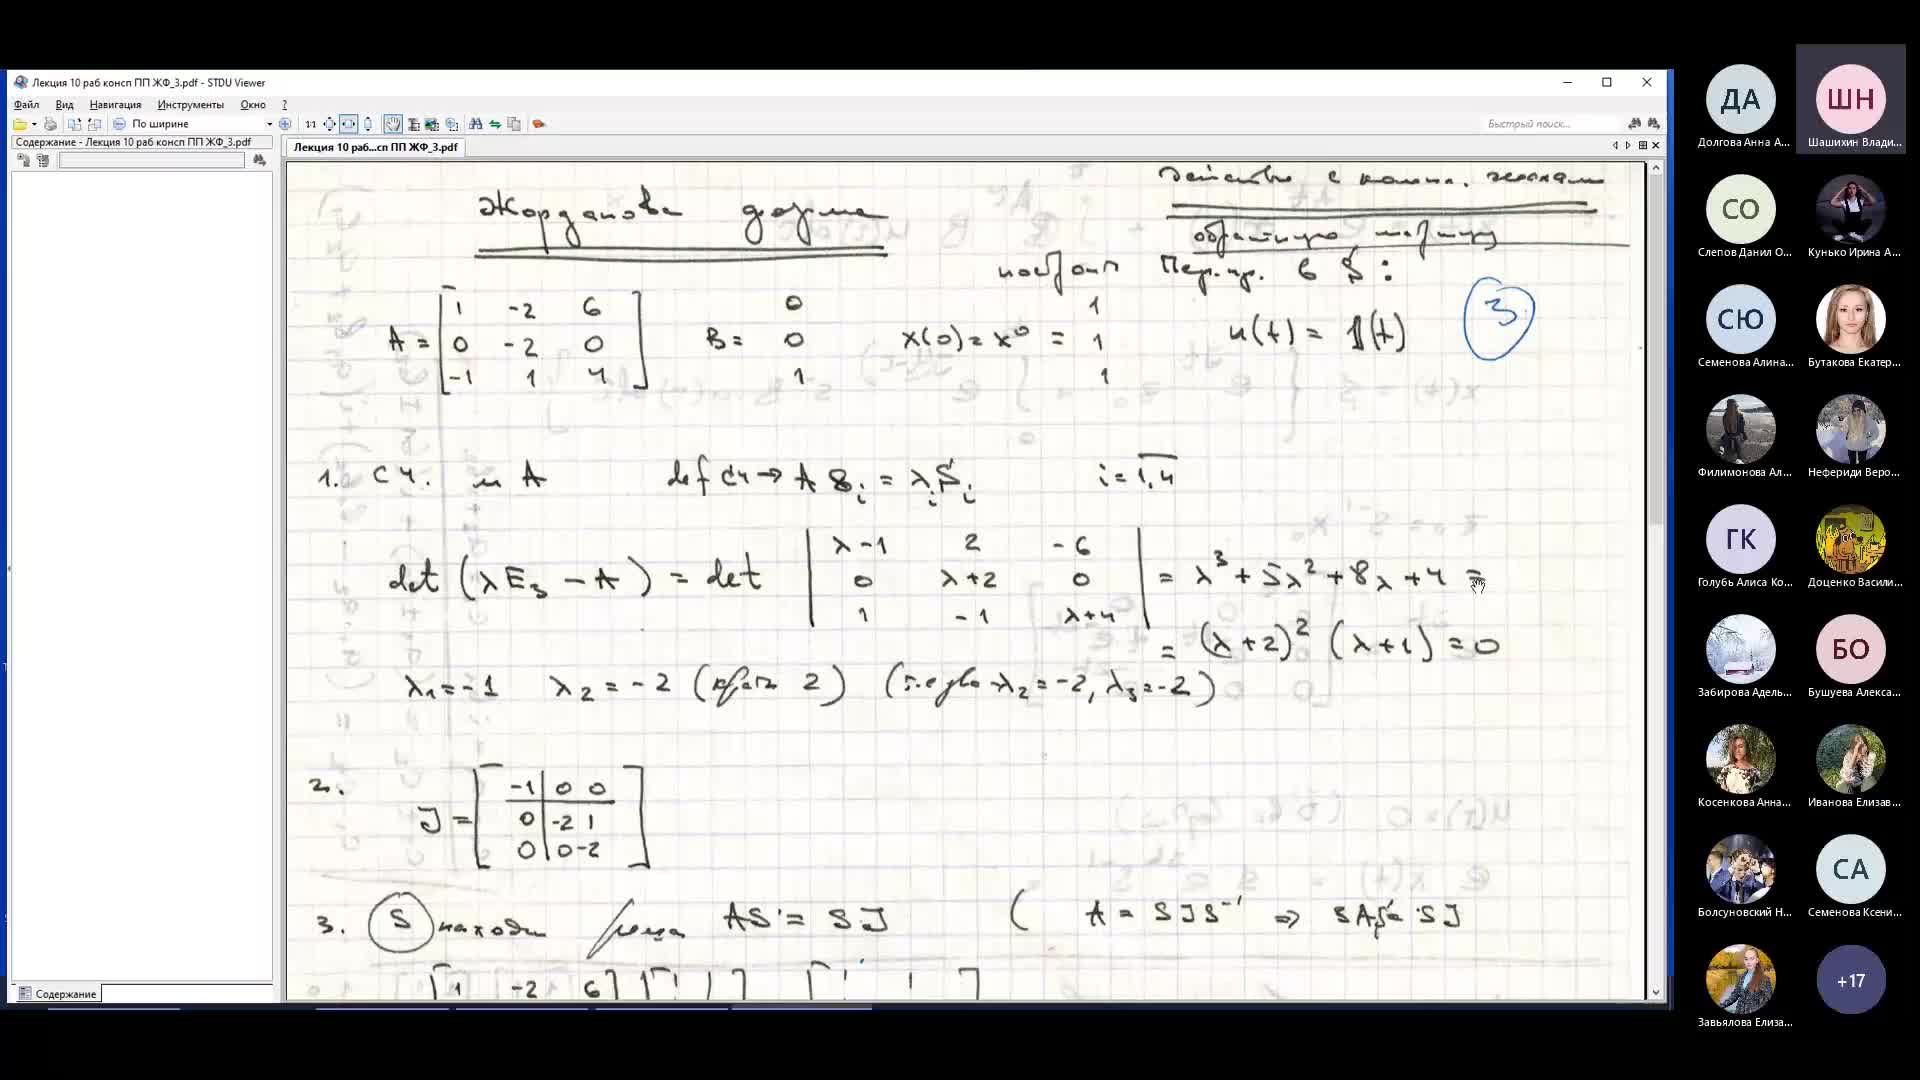 Лекция 10 раб консп ПП ЖФ_3.pdf - STDU Viewer
Файл Вид Навигация Инструменты Окно ?
По ширине
1:1
Быстрый поиск...
Содержание - Лекция 10 раб консп ПП ЖФ_3.pdf
Лекция 10 раб...сп ПП ЖФ_3.pdf
Жорданова форма
действ с компл.
обратную матрицу
Пер.пр. в S:
A = [ 1 -2 6
0 -2 0
-1 1 4 ]
B = 0
0
1
x(0) = x⁰ = 1
1
1
u(t) = 1(t)
3
1. СЧ. м A def СЧ → A S_i = λ_i S_i i = 1,4
det (λE₃ - A) = det | λ-1 2 -6
0 λ+2 0
1 -1 λ+4 | = λ³ + 5λ² + 8λ + 4 =
= (λ+2)² (λ+1) = 0
λ₁ = -1 λ₂ = -2 (2) (λ₂ = -2, λ₃ = -2)
2. J = [ -1 0 0
0 -2 1
0 0 -2 ]
3. S находим решая AS = SJ ( A = SJS⁻¹ ⇒ SAS = SJ
1 -2 6
Содержание
ДА
Долгова Анна А...
ШН
Шашихин Влади...
СО
Слепов Данил О...
Кунько Ирина А...
СЮ
Семенова Алина...
Бутакова Екатер...
Филимонова Ал...
Нефериди Веро...
ГК
Голубь Алиса Ко...
Доценко Васили...
Забирова Адель...
БО
Бушуева Алекса...
Косенкова Анна...
Иванова Елизав...
Болсуновский Н...
СА
Семенова Ксени...
Завьялова Елиза...
+17